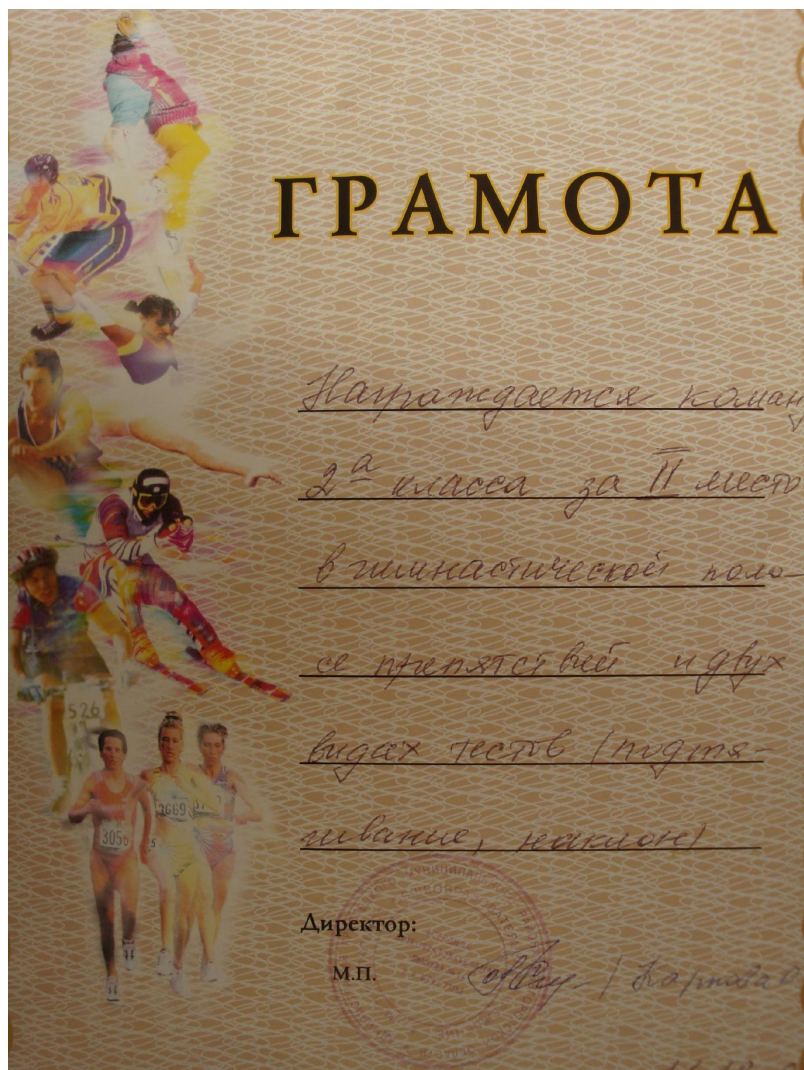 ГРАМОТА
Награждается коман
2а класса за II место
в гимнастической поло-
се препятствий и двух
видах тестов (подтя-
гивание, наклон)
Директор:
М.П.
526
3669
3055